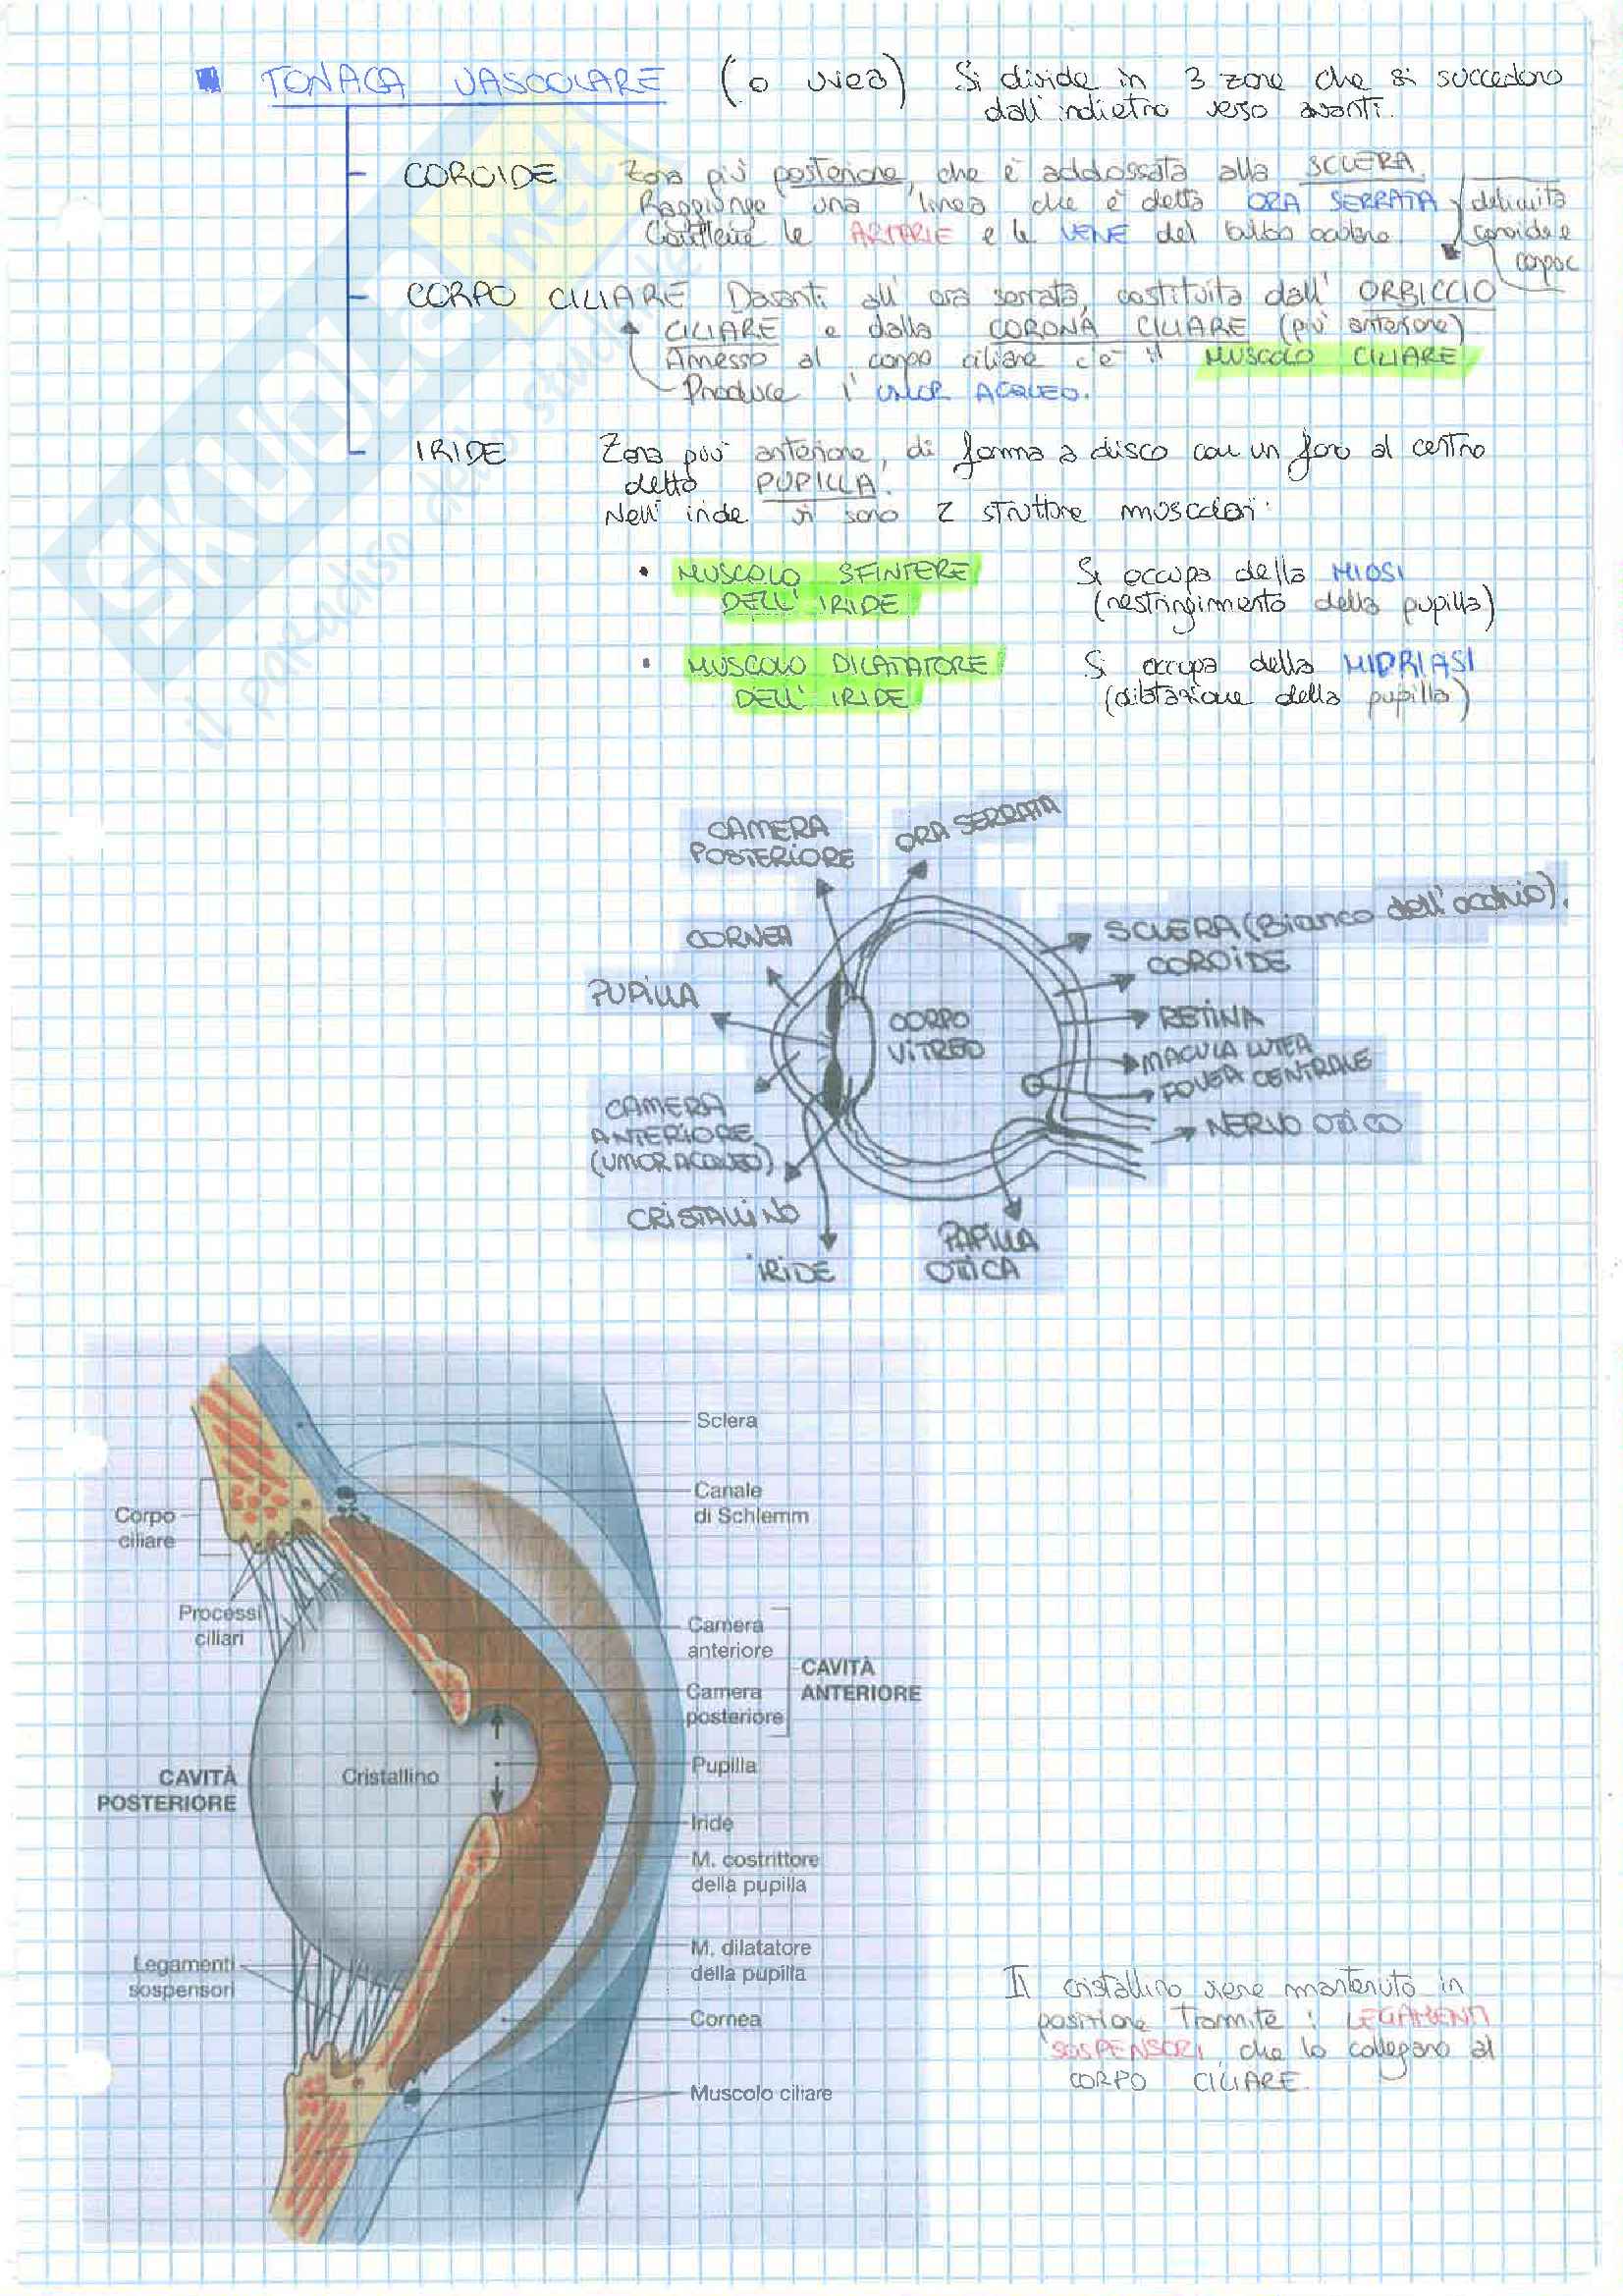 TONACA VASCOLARE (o uvea) Si divide in 3 zone che si succedono
dall'indietro verso avanti.
COROIDE Zona più posteriore, che è addossata alla SCLERA
Raggiunge una linea che è detta ORA SERRATA delimita
Contiene le ARTERIE e le VENE del bulbo oculare. coroide e
corpo c
CORPO CILIARE Davanti all'ora serrata, costituita dall'ORBICCIO
CILIARE e dalla CORONA CILIARE (più anteriore)
Annesso al corpo ciliare c'è il MUSCOLO CILIARE
Produce l'UMOR ACQUEO.
IRIDE Zona più anteriore, di forma a disco con un foro al centro
detto PUPILLA.
Nell'iride vi sono 2 strutture muscolari:
• MUSCOLO SFINTERE Si occupa della MIOSI
DELL'IRIDE (restringimento della pupilla)
• MUSCOLO DILATATORE Si occupa della MIDRIASI
DELL'IRIDE (dilatazione della pupilla)
SKUOLA.net
il paradiso dello studente
CAMERA
POSTERIORE
ORA SERRATA
CORNEA
SCLERA (Bianco dell'occhio).
COROIDE
PUPILLA
CORPO
VITREO
RETINA
MACULA LUTEA
FOVEA CENTRALE
CAMERA
ANTERIORE
(UMOR ACQUEO)
NERVO OTTICO
CRISTALLINO
IRIDE
PAPILLA
OTTICA
Sclera
Canale
di Schlemm
Corpo
ciliare
Processi
ciliari
Camera
anteriore
CAVITÀ
ANTERIORE
Camera
posteriore
Pupilla
CAVITÀ
POSTERIORE
Cristallino
Iride
M. costrittore
della pupilla
M. dilatatore
della pupilla
Legamenti
sospensori
Cornea
Muscolo ciliare
Il cristallino viene mantenuto in
posizione tramite i LEGAMENTI
SOSPENSORI, che lo collegano al
CORPO CILIARE.